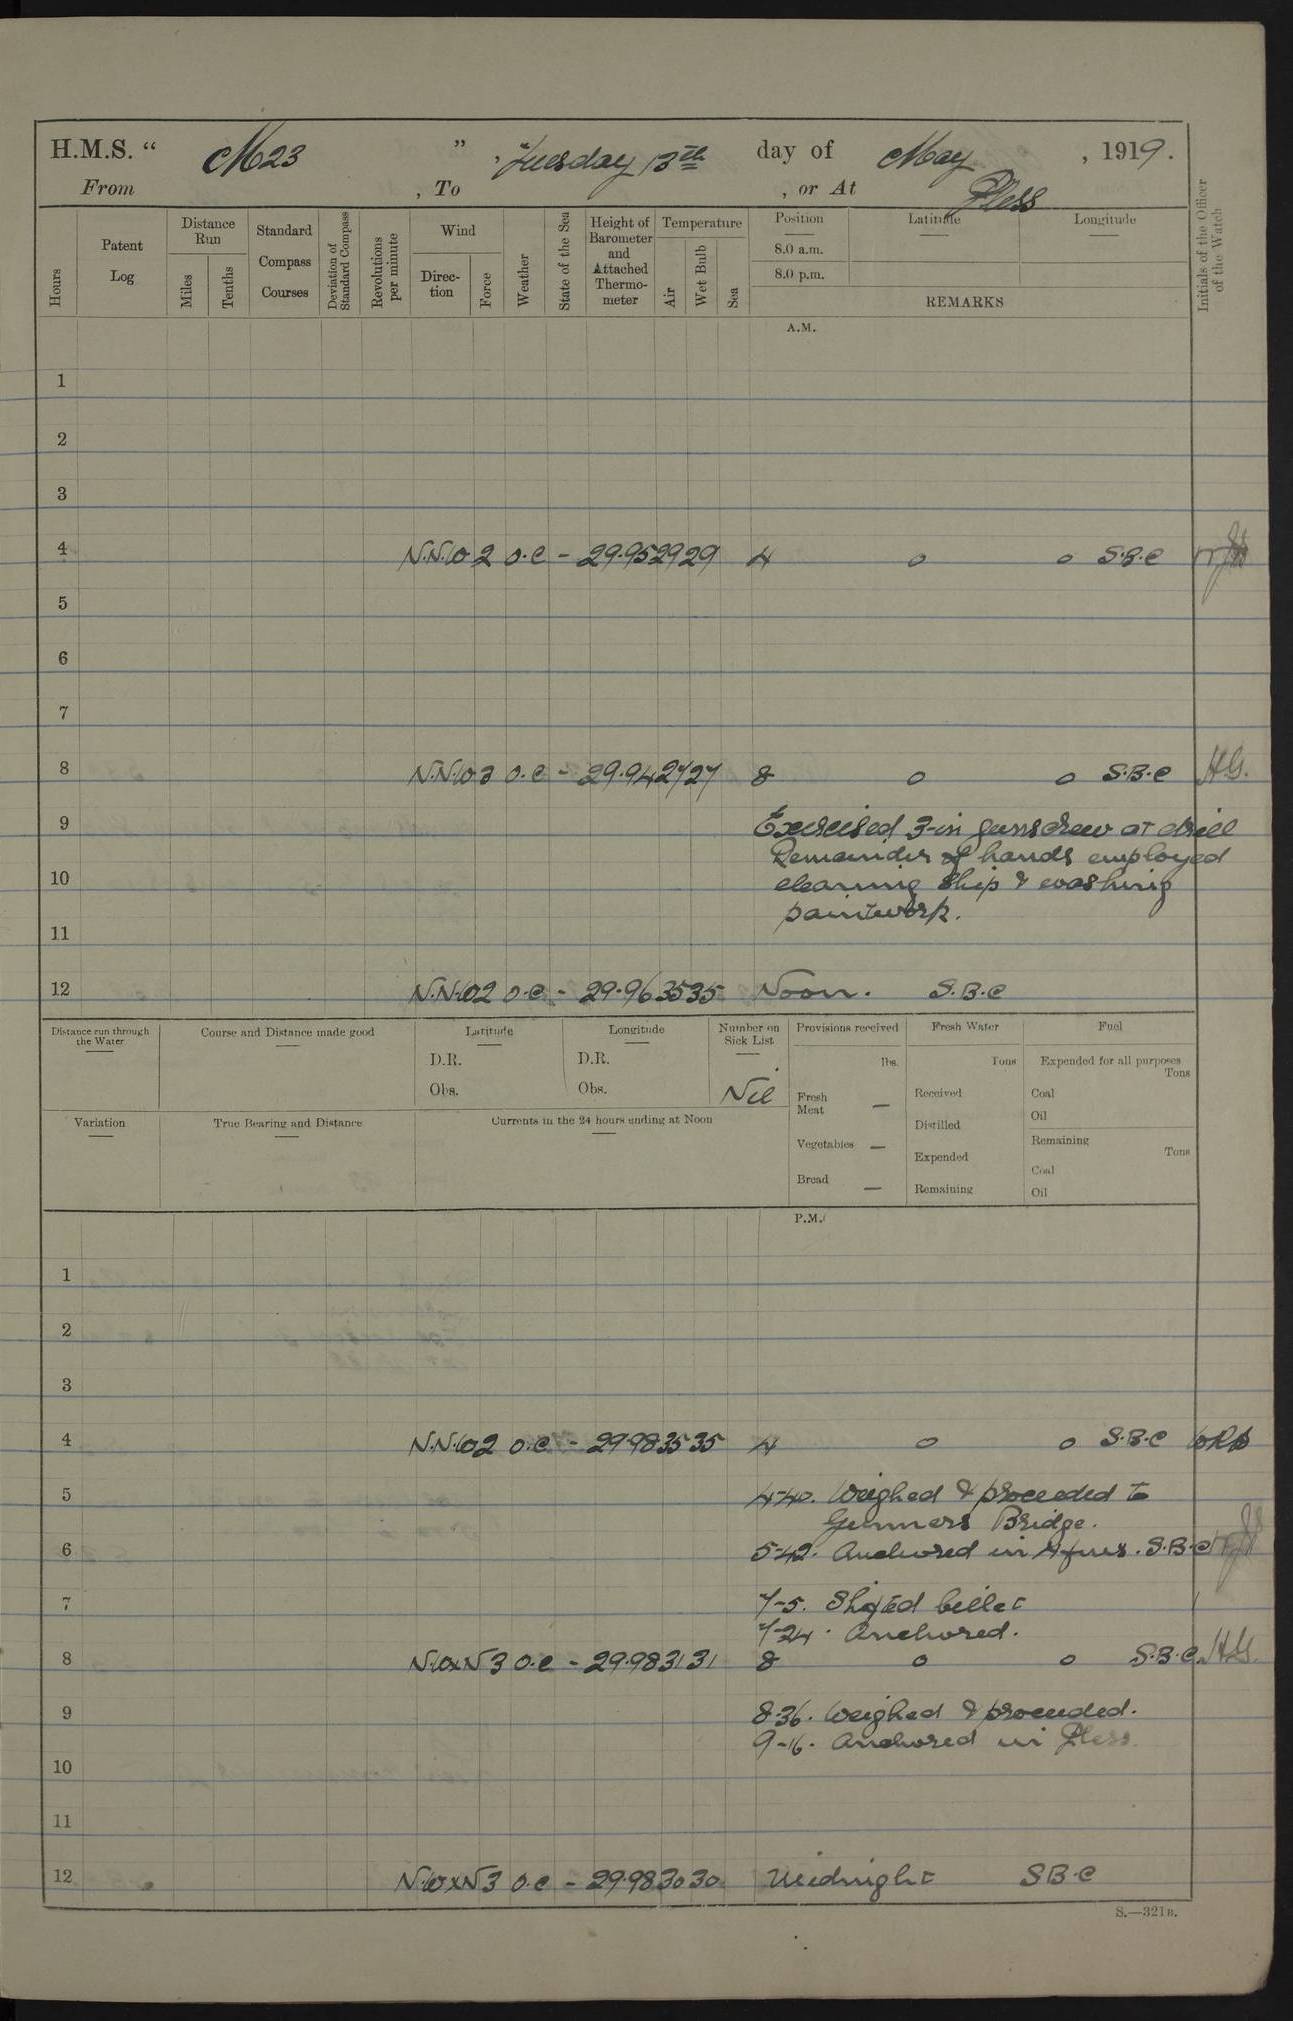 H.M.S. “ M23 ”, Tuesday 13th day of May, 1919.
From , To , or At Pless
Hours
Patent Log
Distance Run
Miles
Tenths
Standard Compass Courses
Deviation of Standard Compass
Revolutions per minute
Wind
Direction
Force
Weather
State of the Sea
Height of Barometer and Attached Thermometer
Temperature
Air
Wet Bulb
Sea
Position
Latitude
Longitude
8.0 a.m.
8.0 p.m.
REMARKS
Initials of the Officer of the Watch
A.M.
1
2
3
4 N.N.W 2 o.c - 29.95 29 29 4 o o S.B.C
5
6
7
8 N.N.W 3 o.c - 29.94 27 27 8 o o S.B.C H.G.
9 Exercised 3-in guns crew at drill
Remainder of hands employed
10 cleaning ship & washing
paintwork.
11
12 N.N.W 2 o.c - 29.96 35 35 Noon. S.B.C
Distance run through the Water
Course and Distance made good
Latitude
D.R.
Obs.
Longitude
D.R.
Obs.
Number on Sick List
Nil
Provisions received
lbs.
Fresh Meat —
Vegetables —
Bread —
Fresh Water
Tons
Received
Distilled
Expended
Remaining
Fuel
Expended for all purposes
Tons
Coal
Oil
Remaining
Tons
Coal
Oil
Variation
True Bearing and Distance
Currents in the 24 hours ending at Noon
P.M.
1
2
3
4 N.N.W 2 o.c - 29.98 35 35 4 o o S.B.C
5 4-40. Weighed & proceeded to
Gunners Bridge.
6 5-42. Anchored in 4 fms. S.B.C
7 7-5. Shifted billet
7-24. Anchored.
8 N.WxN 3 o.c - 29.98 31 31 8 o o S.B.C. H.G.
9 8-36. Weighed & proceeded.
9-16. Anchored in Pless
10
11
12 N.WxN 3 o.c - 29.98 30 30 Midnight S.B.C
S.—321B.